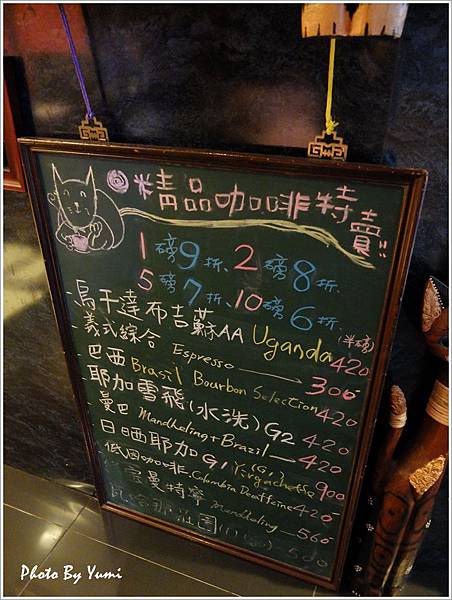 精品咖啡特賣!!
1磅9折、2磅8折、
5磅7折、10磅6折、
烏干達布吉蘇AA Uganda (半磅) 420
義式綜合 Espresso 300
巴西 Brasil Bourbon Selection 420
耶加雪飛(水洗)G2 420
曼巴 Mandheling+Brazil 420
日晒耶加G1 Yirgacheffe 900
低因咖啡 Columbia Decaffeine 420
曼特寧 Mandheling 560
莊園 500
Photo By Yumi